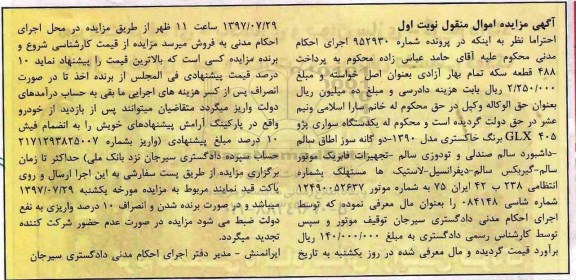 آگهی مزایده اموال منقول نوبت اول
احتراما نظر به اینکه در پرونده شماره ۹۵۲۹۳۰ اجرای احکام
مدنی محکوم علیه آقای حامد عباس زاده محکوم به پرداخت
۴۸۸ قطعه سکه تمام بهار آزادی بعنوان اصل خواسته و مبلغ
۲/۲۵۰/۰۰۰ ریال بابت هزینه دادرسی و مبلغ ده میلیون ریال
بعنوان حق الوکاله وکیل در حق محکوم له خانم سارا اسلامی ونیم
عشر در حق دولت گردیده است و محکوم له یکدستگاه سواری پژو
۴۰۵ GLX برنگ خاکستری مدل ۱۳۹۰-دو گانه سوز اطاق سالم
-داشبورد سالم صندلی و تودوزی سالم -تجهیزات فابریک موتور
سالم-گیربکس سالم-دیفرانسیل-لاستیک ها مستهلک بشماره
انتظامی ۲۳۸ ب ۴۲ ایران ۷۵ به شماره موتور ۱۲۴۹۰۰۵۲۶۳۷
شماره شاسی ۰۸۴۱۴۸ را بعنوان مال معرفی نموده که توسط
اجرای احکام مدنی دادگستری سیرجان توقیف موتور و سپس
توسط کارشناس رسمی دادگستری به مبلغ ۱۴۰/۰۰۰/۰۰۰ ریال
برآورد قیمت گردیده و مال معرفی شده در روز یکشنبه به تاریخ
۱۳۹۷/۰۷/۲۹ ساعت ۱۱ ظهر از طریق مزایده در محل اجرای
احکام مدنی به فروش میرسد مزایده از قیمت کارشناسی شروع و
برنده مزایده کسی است که بالاترین قیمت را پیشنهاد نماید ۱۰
درصد قیمت پیشنهادی فی المجلس از برنده اخذ تا در صورت
انصراف پس از کسر هزینه های اجرایی ما بقی به حساب درآمدهای
دولت واریز میگردد متقاضیان میتوانند پس از بازدید از خودرو
واقع در پارکینگ آرامش پیشنهادهای خویش را به انضمام فیش
۱۰ درصد مبلغ پیشنهادی (واریز بشماره ۲۱۷۱۲۹۳۸۲۵۰۰۷
حساب سپرده دادگستری سیرجان نزد بانک ملی) حداکثر تا زمان
برگزاری مزایده از طریق پست سفارشی به این اجرا ارسال و روی
پاکت قید نمایند مربوط به مزایده مورخه یکشنبه ۱۳۹۷/۰۷/۲۹
میباشد و در صورت برنده شدن و انصراف ۱۰ درصد واریزی به نفع
دولت ضبط می شود مزایده در صورت عدم حضور شرکت کننده
تجدید میگردد.
ایرانمنش - مدیر دفتر اجرای احکام مدنی دادگستری سیرجان